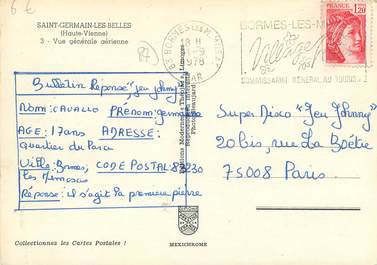 6 €
SAINT-GERMAIN-LES-BELLES
(Haute-Vienne)
3 - Vue générale aérienne
87
18 H
1978
VAR
BORMES-LES-M
Village
COMMISSARIAT GÉNÉRAL AU TOURISME
1,20
Bulletin Réponse "Jeu Johnny"
Nom: CAVALLO PRÉNOM: germaine
AGE: 17 ans ADRESSE:
Quartier du Parc
Ville: Bormes CODE POSTAL: 83230
les Mimosas
Réponse: il s'agit la première pierre
Super Disco "Jeu Johnny"
20 bis, rue La Boëtie
75008 Paris
Collectionnez les Cartes Postales !
MEXICHROME